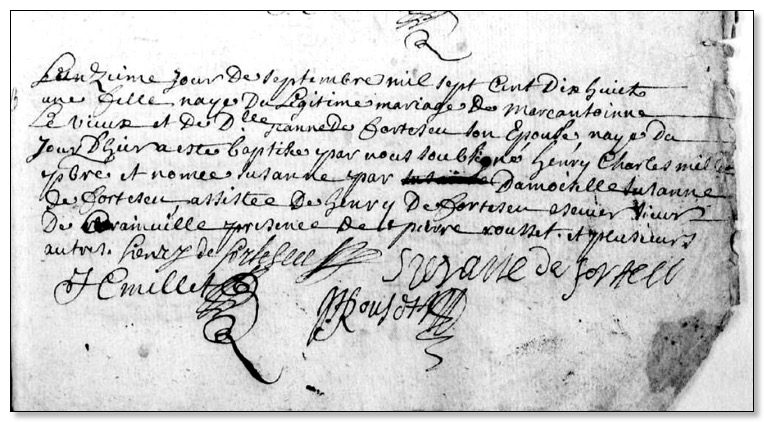 Le unzieme jour de septembre mil sept cent dix huict
une fille naye du legitime mariage de Marcantoinne
Le vieux et de Dlle Jeanne de fortescu son epouse naye du
jour d'huy a esté baptisée par nous soubsigné henry Charles millet
pbre et nomée susanne par Damoiselle susanne
de fortescu assistée de henry De fortescu escuier sieur
De presence de pierre rousset et plusieurs
autres. henry de fortescu susanne de fortescu
H C millet
P Rousset